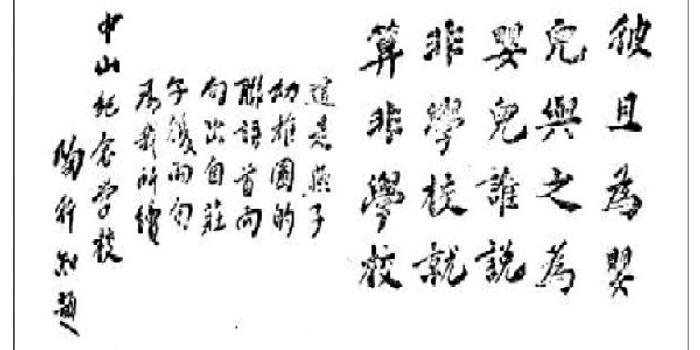 彼且為嬰
兒與之為
嬰兒誰說
非學校就
算非學校
這是燕子
幼稚園的
聯語首兩
句出自莊
子後兩句
為我所續
中山紀念学校
陶行知題